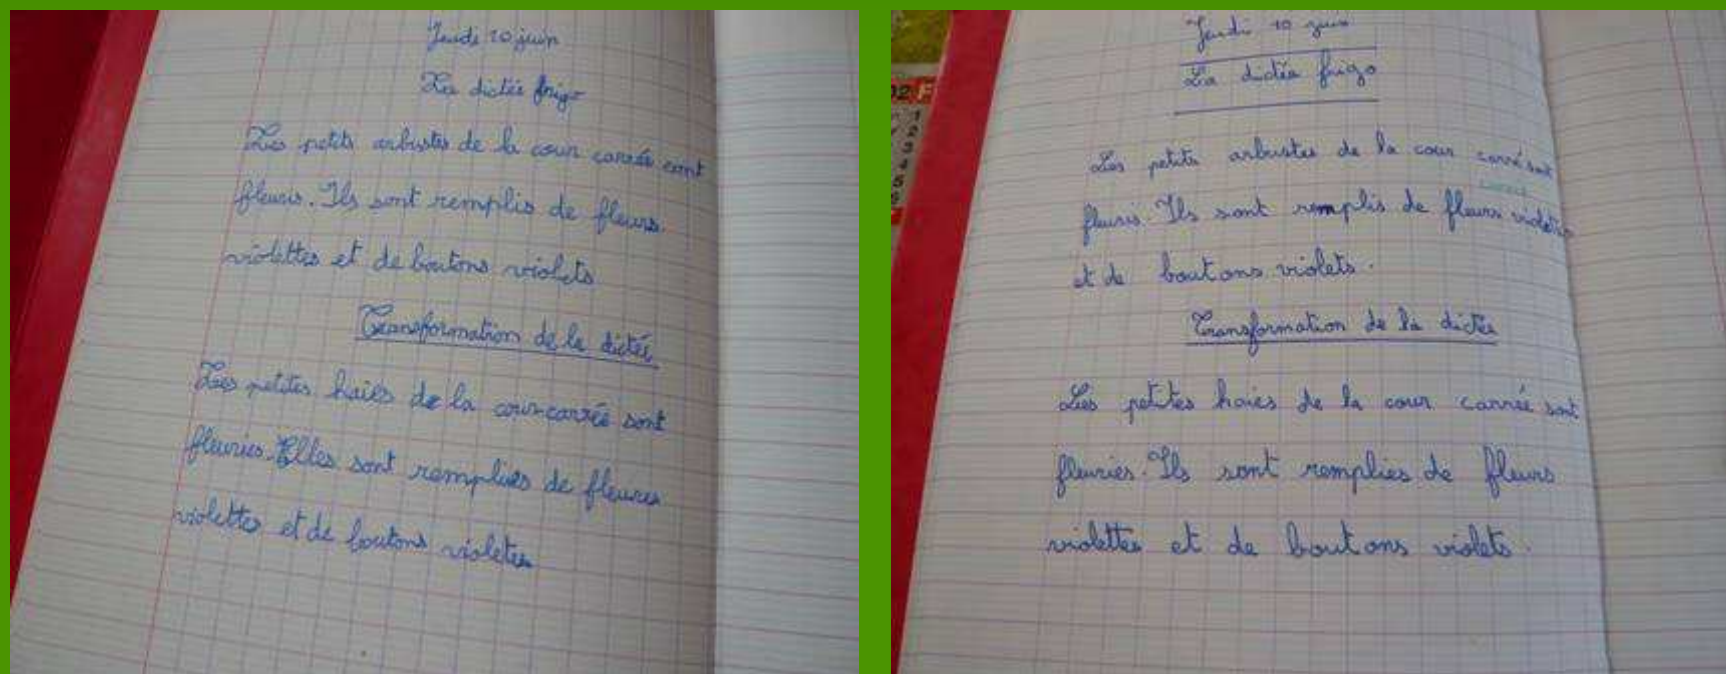 Jeudi 10 juin
La dictée frigo
Les petits arbustes de la cour carrée sont
fleuris. Ils sont remplis de fleurs.
violettes et de boutons violets
Transformation de la dictée
Les petites haies de la cour carrée sont
fleuries. Elles sont remplies de fleures
violettes et de boutons violetes
Jeudi 10 juin
La dictée frigo
Les petits arbustes de la cour carré sont
fleuris. Ils sont remplis de fleurs violettes
et de boutons violets.
Transformation de la dictée
Les petites haies de la cour carrée sont
fleuries. Ils sont remplies de fleurs
violettes et de boutons violets.